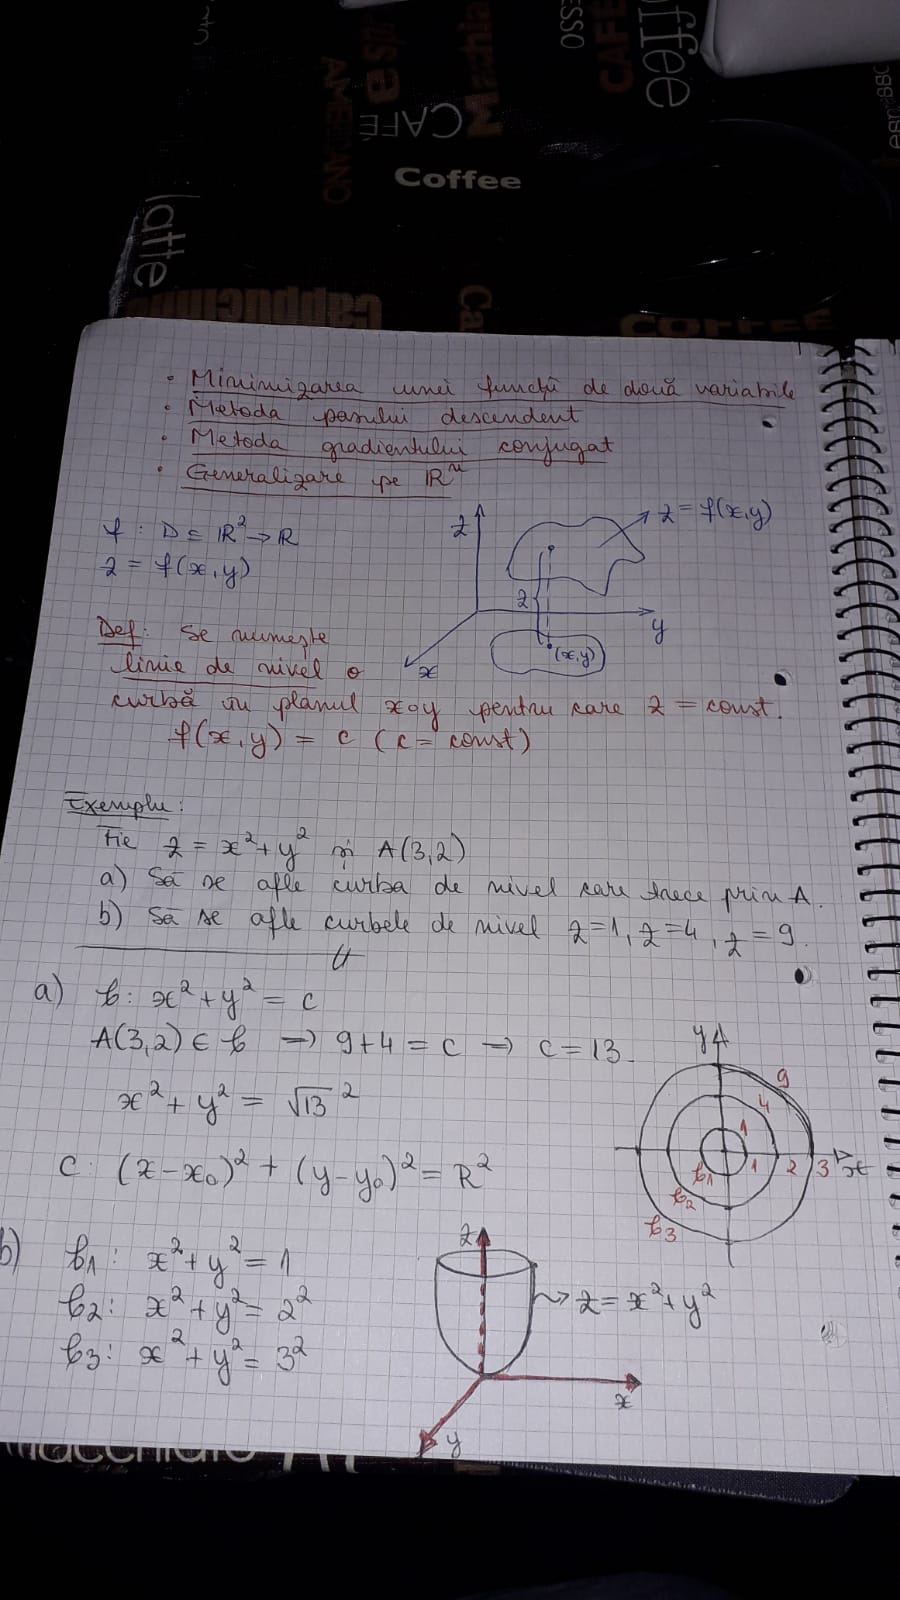 Coffee
CAFÉ
Machia
AMERICANO
latte
Cappuccino
Ca
COFFEE
ESSO
CAFE
ffee
• Minimizarea unei funcții de două variabile
• Metoda pasului descendent
• Metoda gradientului conjugat
• Generalizare pe ℝⁿ
f : D ⊆ ℝ² → ℝ
z = f(x,y)
z
z = f(x,y)
z
y
x
(x,y)
Def: Se numește
linie de nivel o
curbă în planul xoy pentru care z = const.
f(x,y) = c (c = const)
Exemplu:
Fie z = x² + y² și A(3,2)
a) Să se afle curba de nivel care trece prin A.
b) Să se afle curbele de nivel z=1, z=4, z=9.
a) C: x² + y² = c
A(3,2) ∈ C ⇒ 9+4 = c ⇒ c = 13.
x² + y² = √13²
C: (x-x₀)² + (y-y₀)² = R²
y
9
4
1
1 2 3 x
C₁
C₂
C₃
b) C₁: x² + y² = 1
C₂: x² + y² = 2²
C₃: x² + y² = 3²
z
z = x² + y²
x
y
macchiato